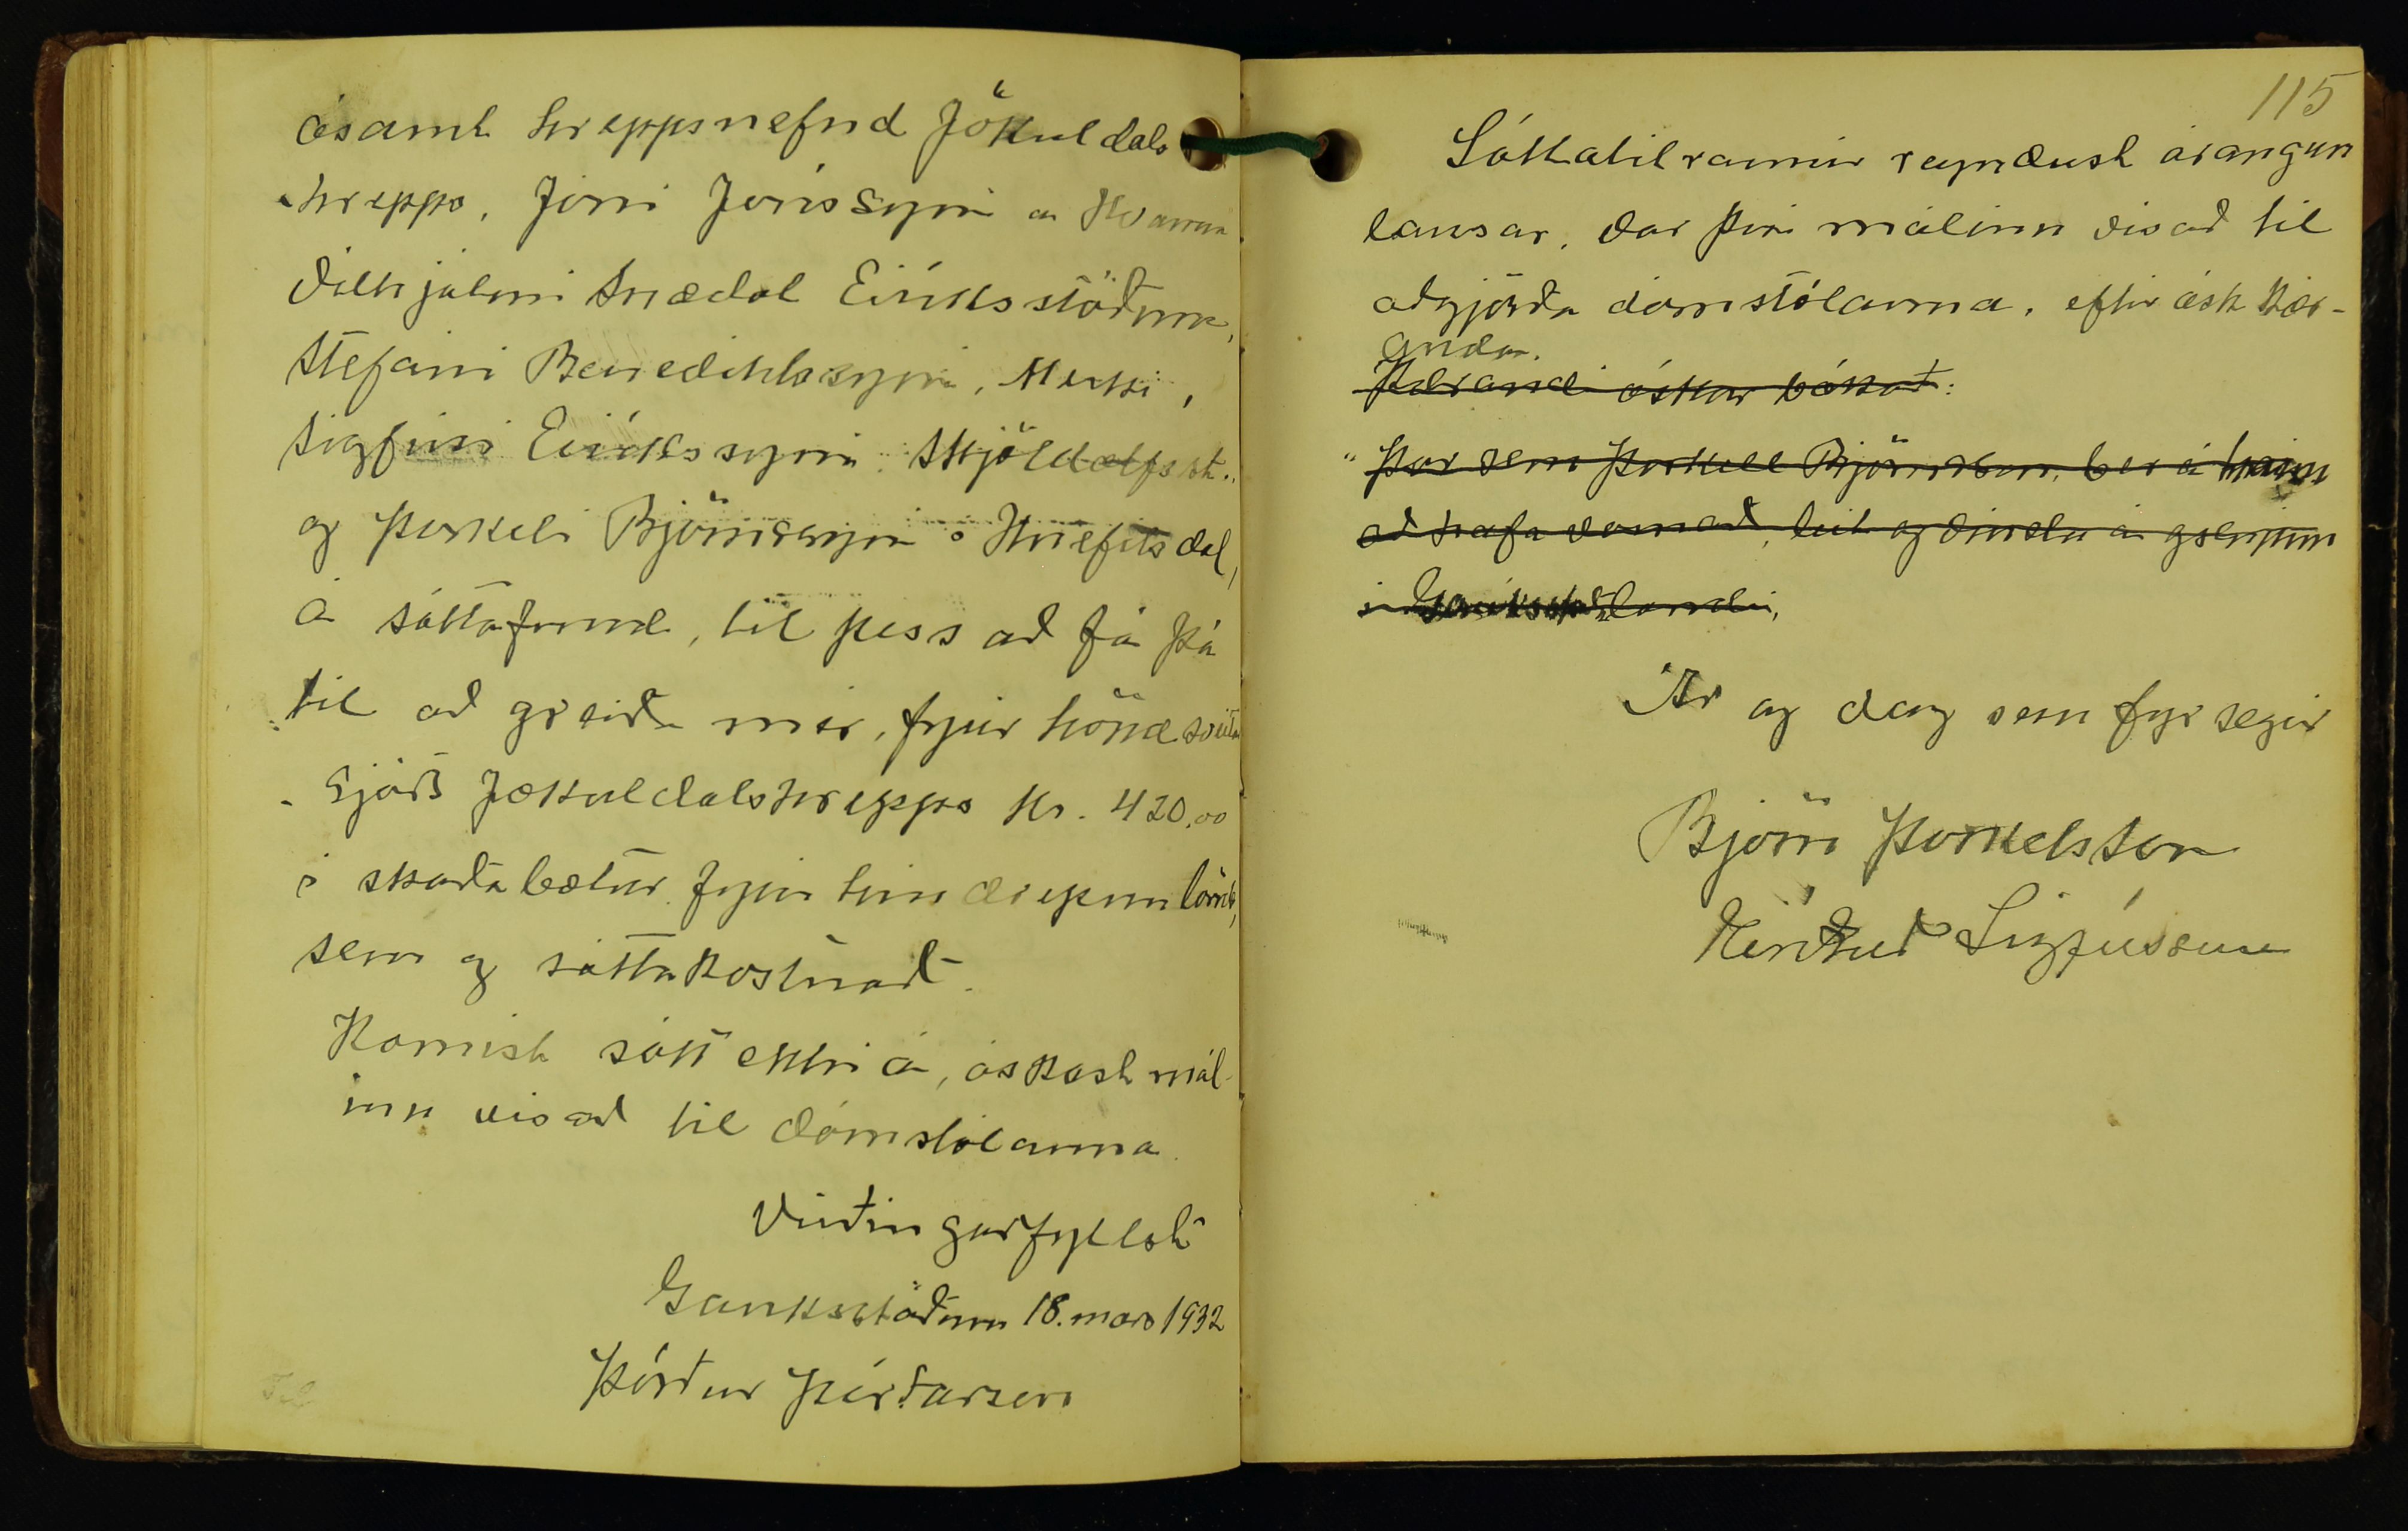 ásamt hreppsnefnd Jökuldals
hrepps, Jóni Jónssyni á Hvanná
Vilhjálmi Snædal Eiríksstöðum,
Stefáni Benediktssyni, Merki,
Sigfúsi Eiríkssyni Skjöldólfsst..
og Þorkeli Björnssyni í Hnefilsdal,
á sáttafund, til þess að fá þá
til að greiða mér, fyrir hönd sveita
sjóðs Jökuldalshrepps kr. 420,00
í skaðabætur fyrir hin drepnu lömb,
sem og sáttakostnað.
Komist sátt ekki á, óskast mál-
inu vísað til dómstólanna.
Virðingarfyllst
Gauksstöðum 18. mars 1932
Þórður Þórðarson
115
Sáttatilraunir reyndust árangurs
lausar. Var því málinu vísað til
aðgjörða dómstólanna, eftir ósk kær-
anda.
Kærandi óskar bókað:
"Þar sem Þorkell Björnsson, ber á hann
að hafa vannað leit og vinslu á grenjum
í Gauksst.landi,
Ár og dag sem fyr segir
Björn Þorkelsson
Sigfússon